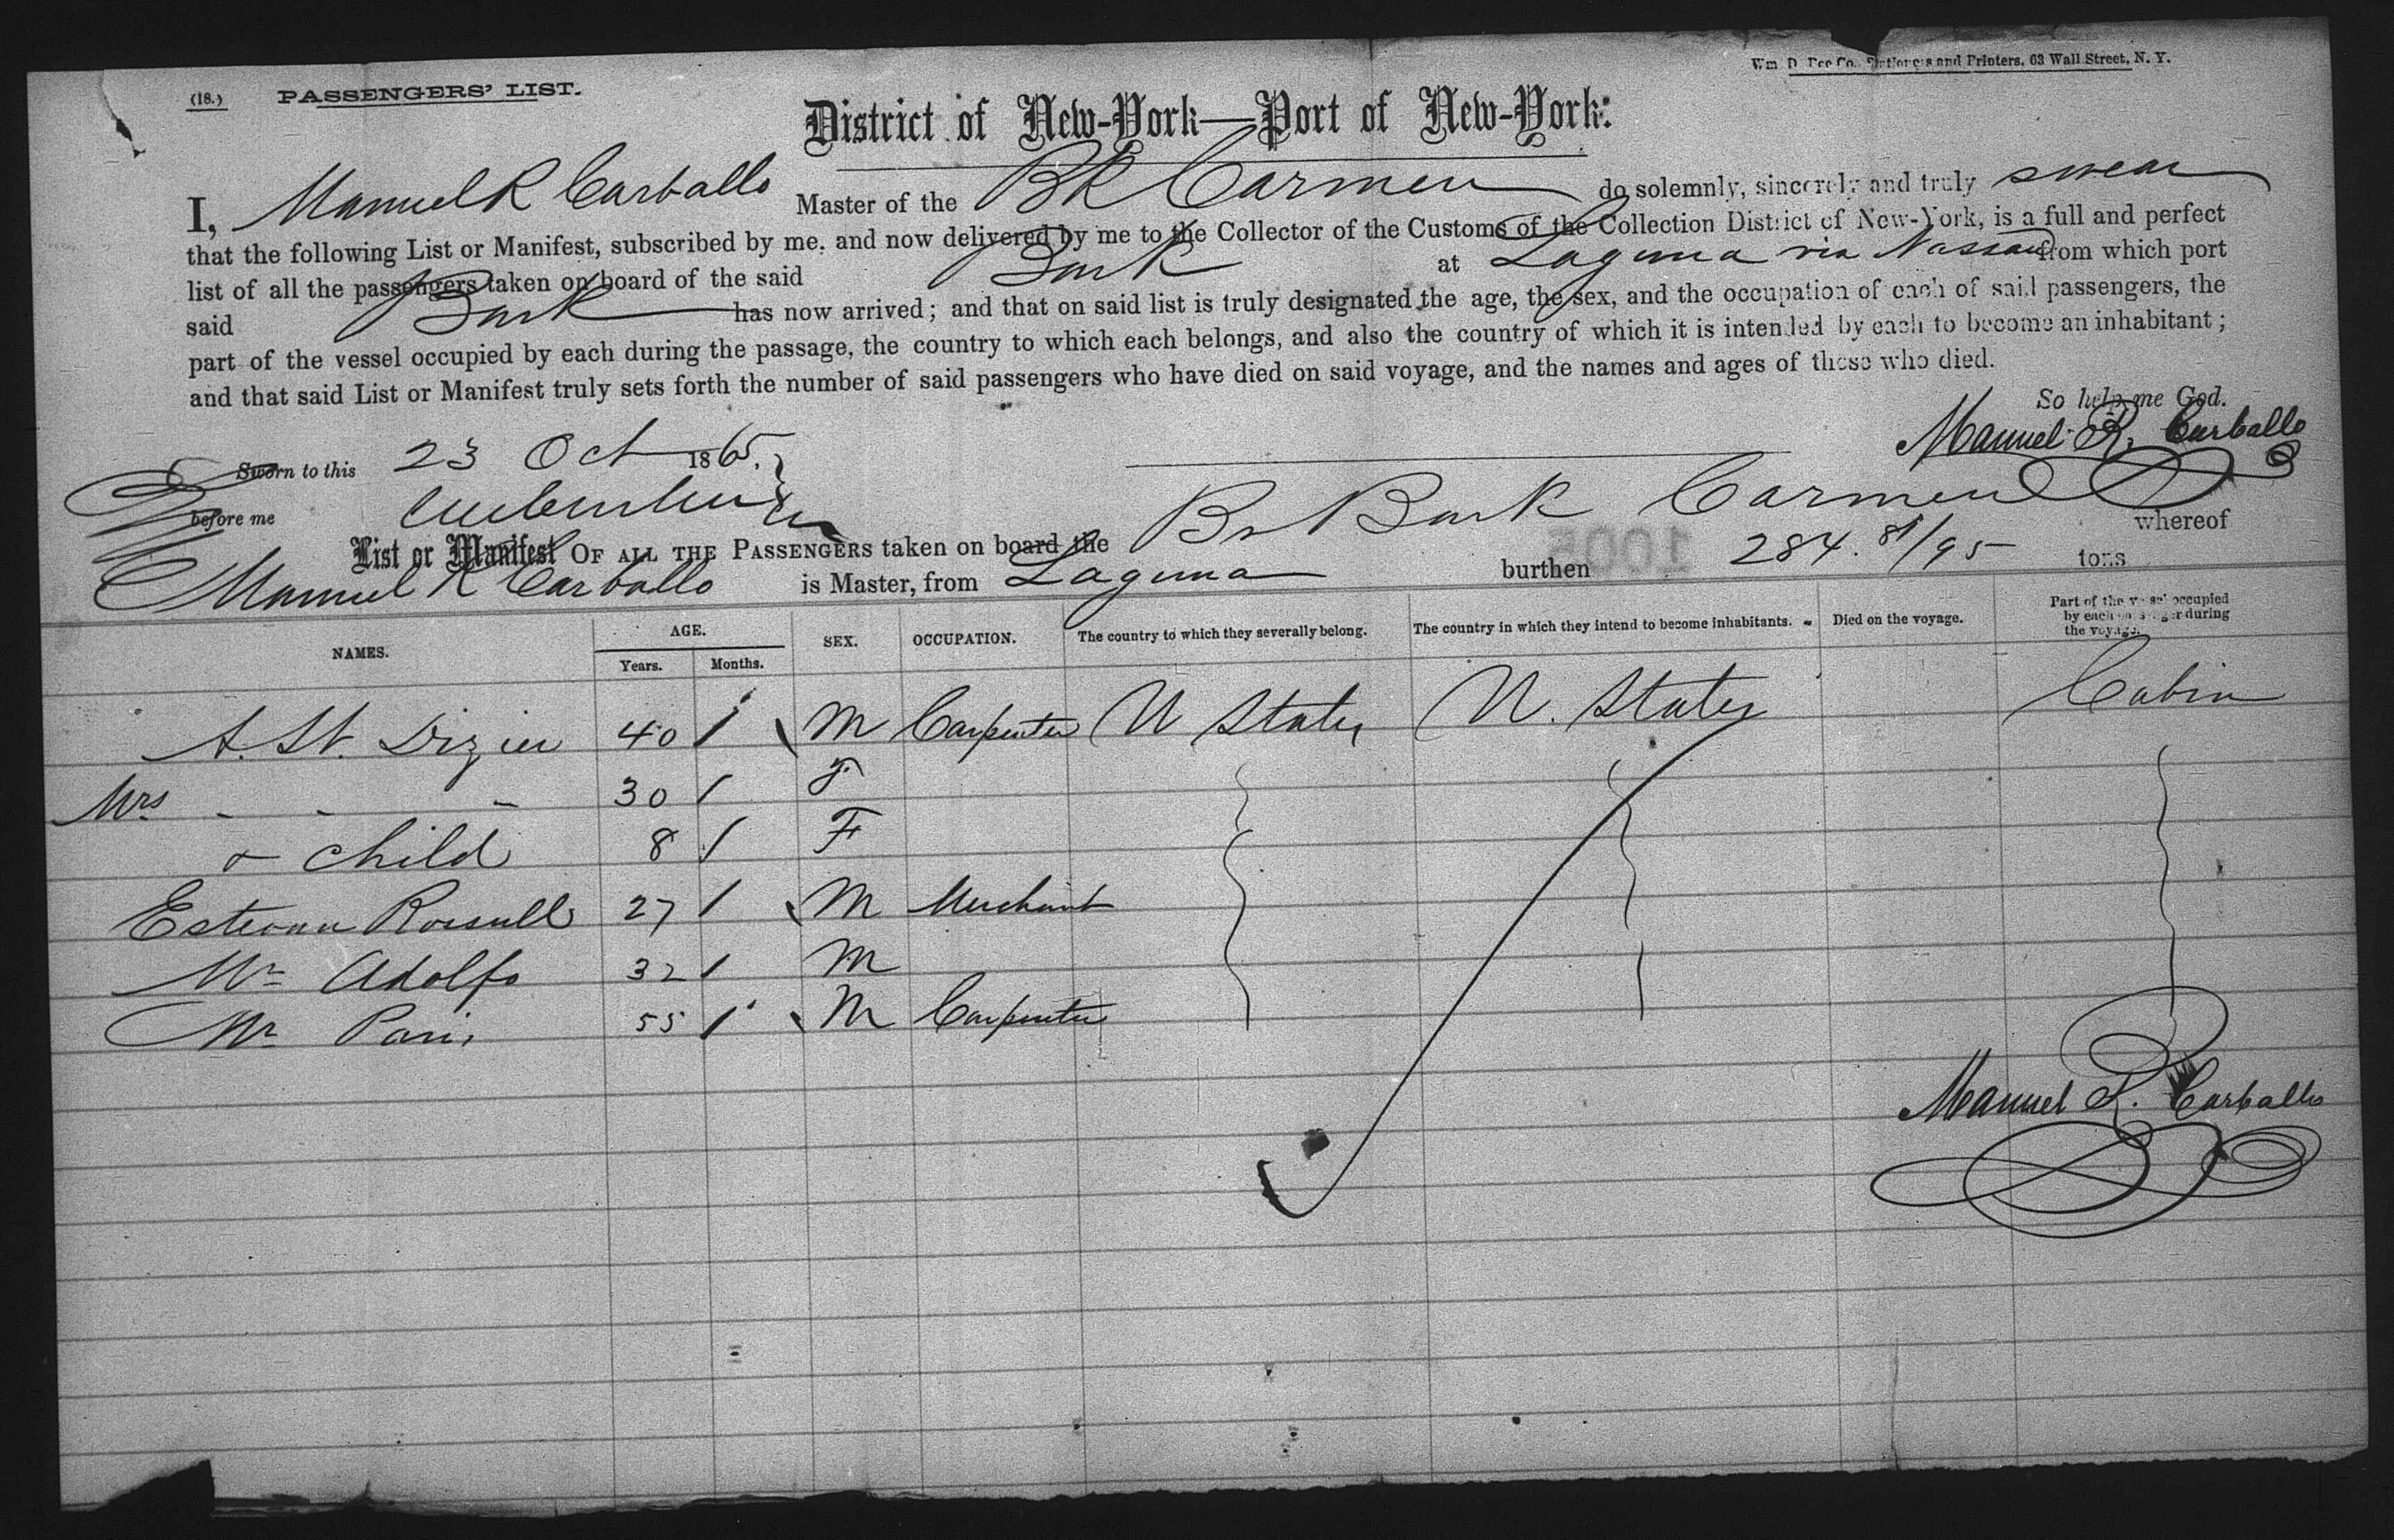 (18.) PASSENGERS' LIST.
63 Wall Street, N. Y.
District of New-York—Port of New-York:
I, Manuel R Carballo Master of the Bk Carmen do solemnly, sincerely and truly swear
that the following List or Manifest, subscribed by me, and now delivered by me to the Collector of the Customs of the Collection District of New-York, is a full and perfect
list of all the passengers taken on board of the said Bark at Laguna via Nassau from which port
said Bark has now arrived; and that on said list is truly designated the age, the sex, and the occupation of each of said passengers, the
part of the vessel occupied by each during the passage, the country to which each belongs, and also the country of which it is intended by each to become an inhabitant;
and that said List or Manifest truly sets forth the number of said passengers who have died on said voyage, and the names and ages of those who died.
So help me God.
Manuel R. Carballo
Sworn to this 23 Oct 1865.
before me
List or Manifest OF ALL THE PASSENGERS taken on board the Br Bark Carmen whereof
Manuel R Carballo is Master, from Laguna burthen 284. 81/95 tons
1005
NAMES. AGE. Years. Months. SEX. OCCUPATION. The country to which they severally belong. The country in which they intend to become inhabitants. Died on the voyage. Part of the vessel occupied by each passenger during the voyage.
A. St. Dizier 40 M Carpenter U States U. States Cabin
Mrs - - - 30 F
& child 8 F
Estevan 27 M Merchant
Mr Adolfo 32 M
Mr Paris 55 M Carpenter
Manuel R. Carballo